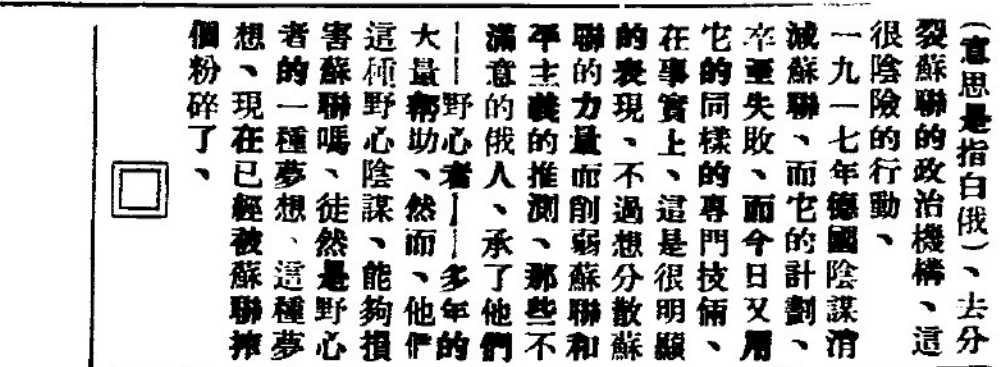 (意思是指白俄)、去分
裂蘇聯的政治機構、這
很陰險的行動、
一九一七年德國陰謀消
減蘇聯、而它的計劃、
卒至失敗、而今日又用
它的同樣的專門技倆、
在事實上、這是很明顯
的表現、不過想分散蘇
聯的力量而削弱蘇聯和
平主義的推測、那些不
滿意的俄人、承了他們
——野心者——多年的
大量幫助、然而、他們
這種野心陰謀、能夠損
害蘇聯嗎、徒然是野心
者的一種夢想、這種夢
想、現在已經被蘇聯摔
個粉碎了、